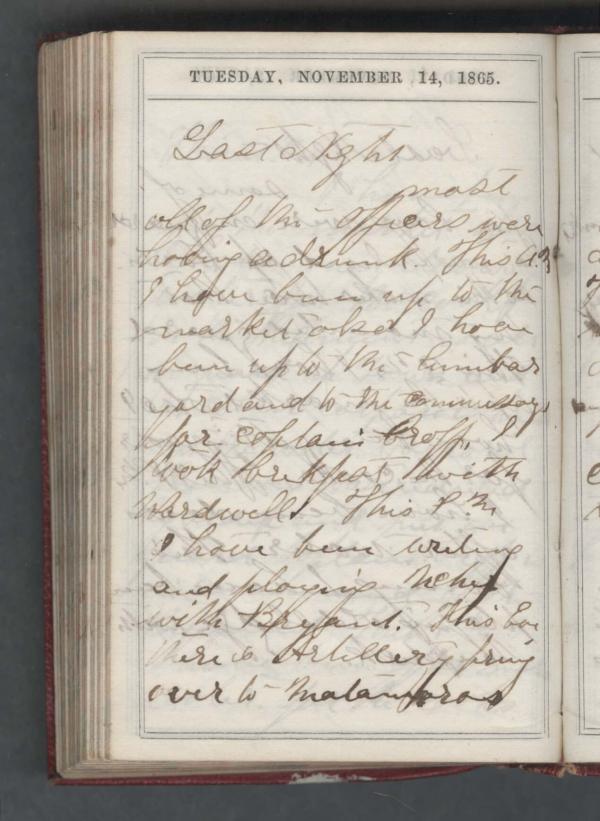 TUESDAY, NOVEMBER 14, 1865.
Last Night
most
all of the officers were
having a drunk. This A.M
I have been up to the
market also I have
been up to the lumbar
yard and to the commissary
for Captain Groff, I
took brekfast with
Wardwell. This P.M.
I have been writing
and playing
with Bryant. This Eve
there is Artillery firing
over to Matamoras